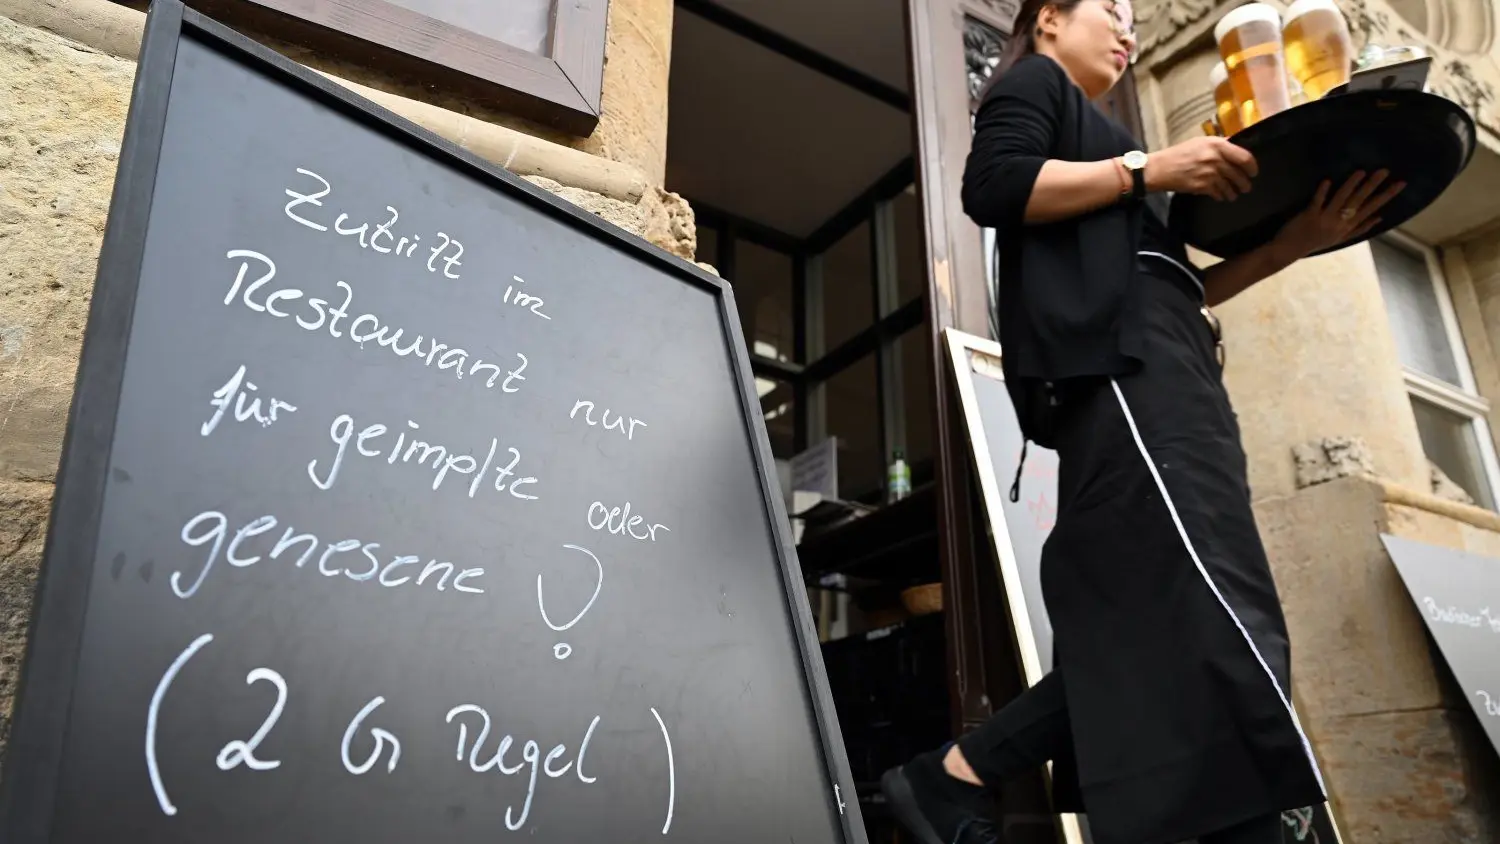 Zutritt im
Restaurant nur
für geimpfte oder
genesene!
(2 G Regel)